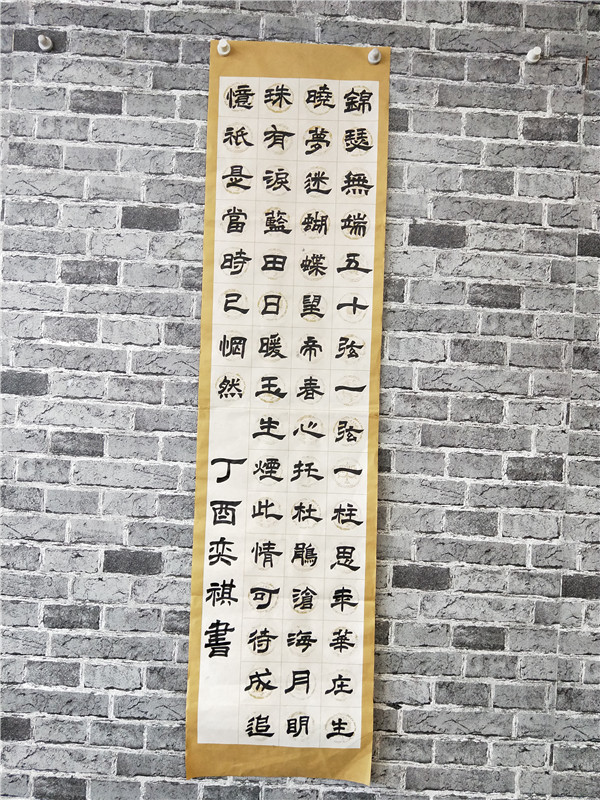 錦瑟無端五十弦一弦一柱思年華庄生
曉夢迷蝴蝶望帝春心托杜鵑滄海月明
珠有淚藍田日暖玉生煙此情可待成追
憶祇是當時已惘然 丁酉奕祺書